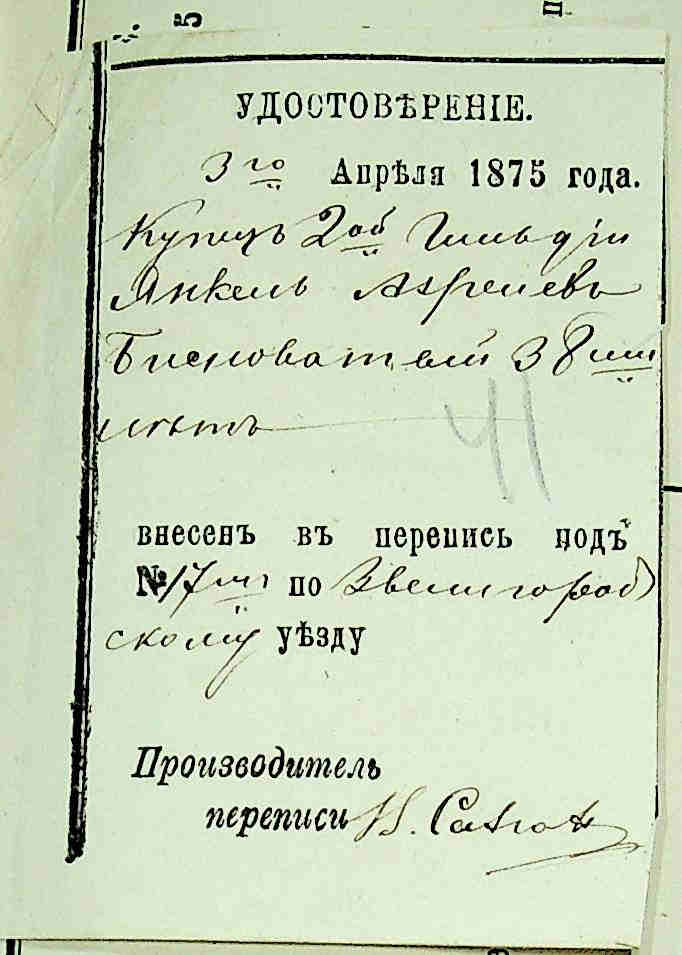 УДОСТОВѢРЕНІЕ.
3го Апрѣля 1875 года.
Купецъ 2ой Гильдіи
Янкель
38ми
лѣтъ
41
внесенъ въ перепись подъ
№ 17мъ по Звенигород
скому уѣзду
Производитель
переписи